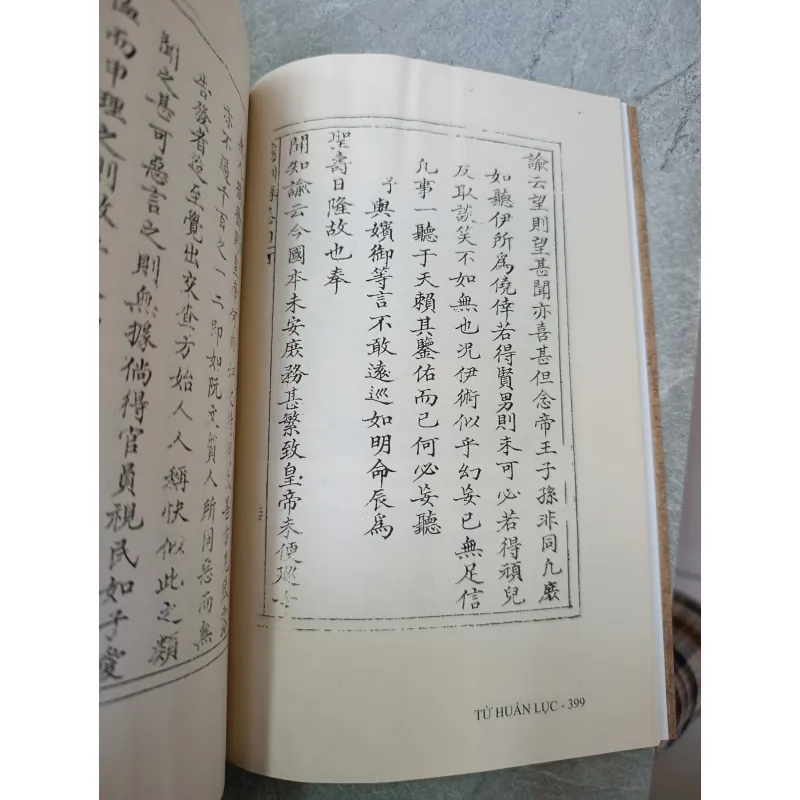 諭云望則望甚聞亦喜甚但念帝王子孫非同凡庶
如聽伊所爲僥倖若得賢男則未可必若得頑兒
反取談笑不如無也况伊術似乎幻妄已無足信
凡事一聽于天賴其鑒佑而已何必妄聽
予與嬪御等言不敢遠巡如明命辰爲
聖壽日隆故也奉
聞知諭云今國本未安庶務甚繁致皇帝未便
而申理之則
聞之甚可惡言之則無據倘得官員視民如子
告發者迨至覺出交查方始人人稱快似此之類
亦不隱千百之一二即如阮文質人所同惡而無
TỪ HUẤN LỤC - 399